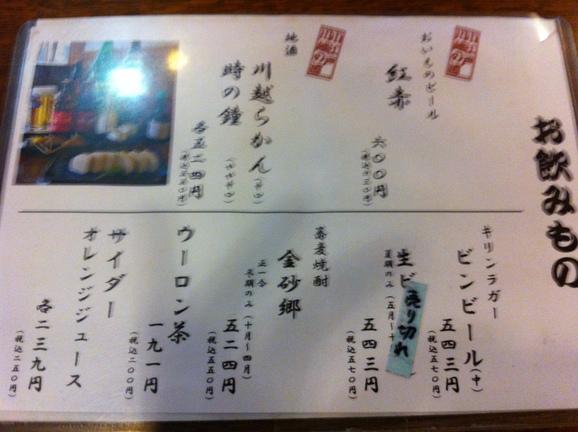 お飲みもの
おいものビール
紅赤
六〇〇円
地酒
川越らかん
時の鐘
各五二四円
キリンラガー
ビンビール(中)
五四三円
(税込五七〇円)
生ビ
売り切れ
五四三円
(税込五七〇円)
蕎麦焼酎
金砂郷
正一合
(十月〜四月)
五二四円
(税込五五〇円)
ウーロン茶
一九一円
(税込二〇〇円)
サイダー
オレンジジュース
各二三九円
(税込二五〇円)